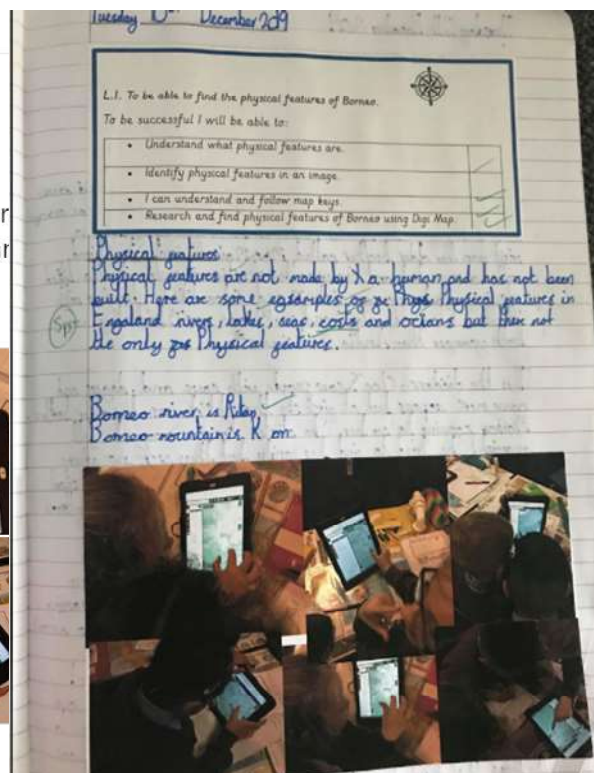 Tuesday 10th December 2019
L.I. To be able to find the physical features of Borneo.
To be successful I will be able to:
• Understand what physical features are.
• Identify physical features in an image.
• I can understand and follow map keys.
• Research and find physical features of Borneo using Digi Map.
Physical features
Physical features are not made by a human and has not been
built. Here are some egsamples of Physical features in
Sp England rivers, lakes, seas, costs and octans but ther not
the only Physical features.
Borneo river is
Borneo mountain is K on